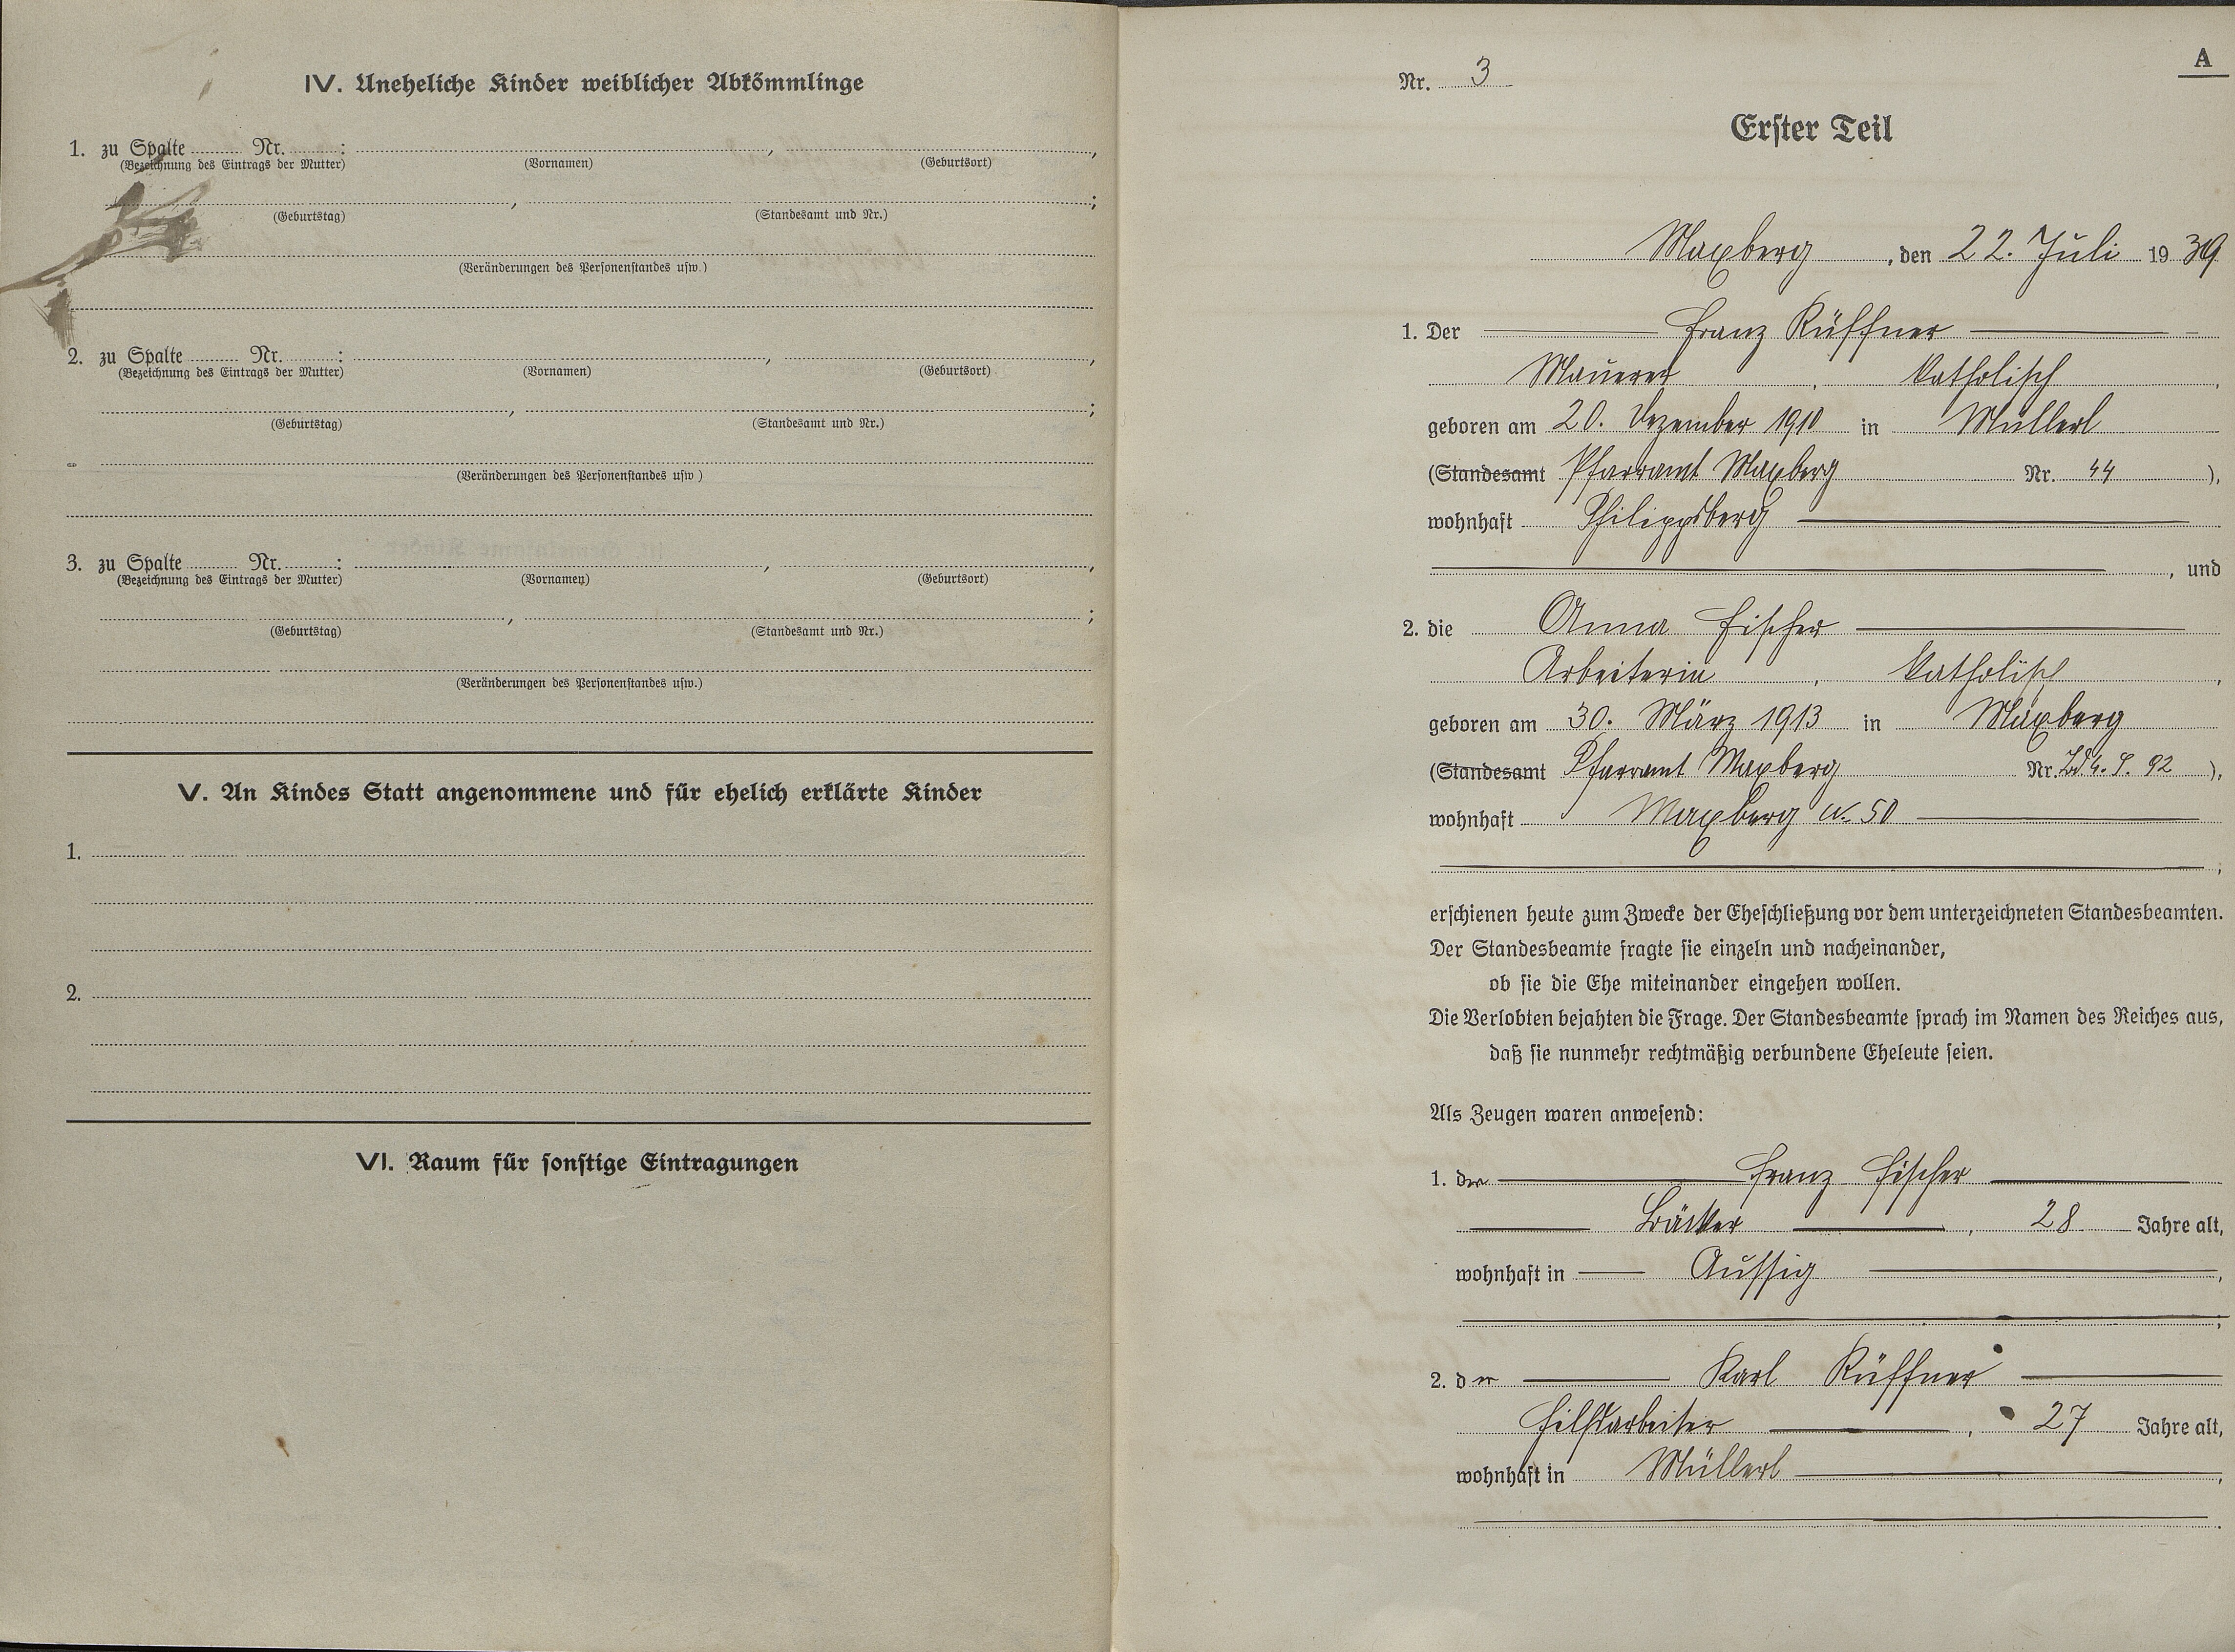 IV. Uneheliche Kinder weiblicher Abkömmlinge
1. zu Spalte Nr. : , ,
(Bezeichnung des Eintrags der Mutter) (Vornamen) (Geburtsort)
, ;
(Geburtstag) (Standesamt und Nr.)
(Veränderungen des Personenstandes usw.)
2. zu Spalte Nr. : , ,
(Bezeichnung des Eintrags der Mutter) (Vornamen) (Geburtsort)
, ;
(Geburtstag) (Standesamt und Nr.)
(Veränderungen des Personenstandes usw)
3. zu Spalte Nr. : , ,
(Bezeichnung des Eintrags der Mutter) (Vornamen) (Geburtsort)
, ;
(Geburtstag) (Standesamt und Nr.)
(Veränderungen des Personenstandes usw.)
V. An Kindes Statt angenommene und für ehelich erklärte Kinder
1.
2.
VI. Raum für sonstige Eintragungen
A
Nr. 3
Erster Teil
Maxberg, den 22. Juli 1939
1. Der Franz Rüffner
Maurer, katholisch,
geboren am 20. Dezember 1910 in Müllerl
(Standesamt Pfarramt Maxberg Nr. 44),
wohnhaft Philippsberg
, und
2. die Anna Fischer
Arbeiterin, katholisch,
geboren am 30. März 1913 in Maxberg
(Standesamt Pfarramt Maxberg Nr. Bd 4. S. 92),
wohnhaft Maxberg N. 50
;
erschienen heute zum Zwecke der Eheschließung vor dem unterzeichneten Standesbeamten.
Der Standesbeamte fragte sie einzeln und nacheinander,
ob sie die Ehe miteinander eingehen wollen.
Die Verlobten bejahten die Frage. Der Standesbeamte sprach im Namen des Reiches aus,
daß sie nunmehr rechtmäßig verbundene Eheleute seien.
Als Zeugen waren anwesend:
1. der Franz Fischer
Bäcker, 28 Jahre alt,
wohnhaft in Aussig,
;
2. der Karl Rüffner
Hilfsarbeiter, 27 Jahre alt,
wohnhaft in Müllerl,
.